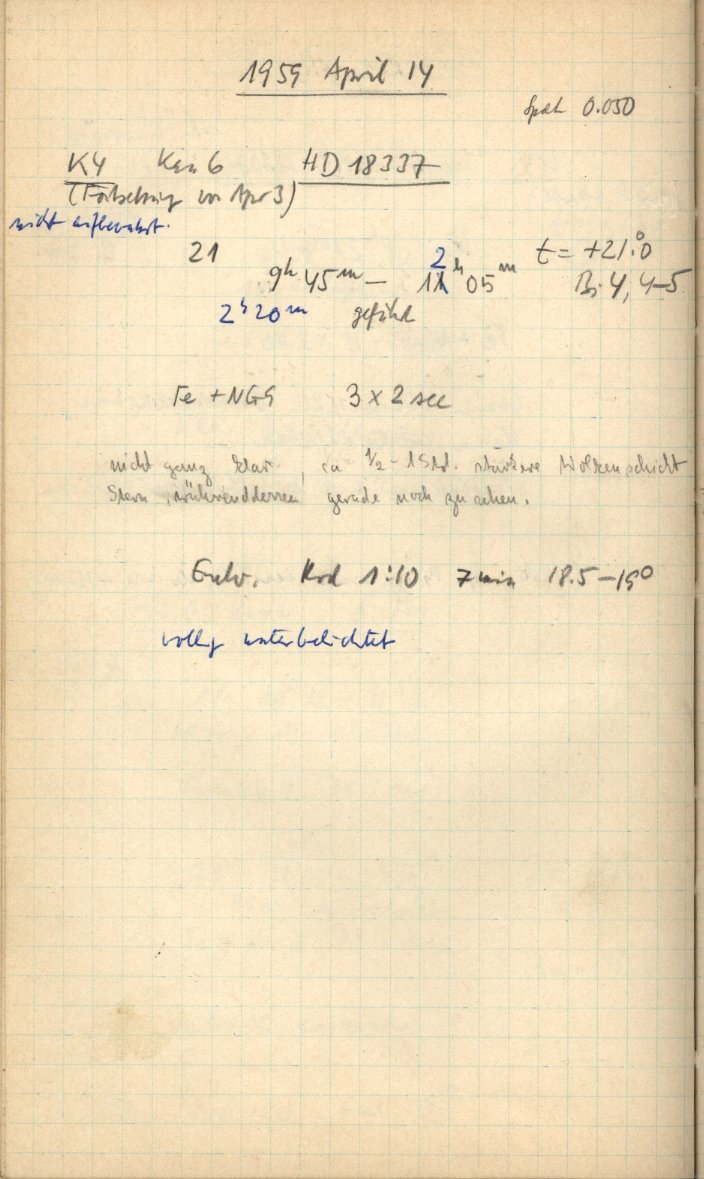 1959 April 14
Spalt 0.050
K4 Kas 6 HD 18337
(Fortsetzung von Apr 3)
nicht aufbewahrt.
21 t = +21.°0
9h 45m — 12h 05m Bi 4, 4–5
2h 20m geführt
Fe + NGS 3 x 2 sec
nicht ganz klar, ca 1/2 - 1 Std. stärkere Wolkenschicht
Stern währenddessen gerade noch zu sehen.
Entw. Rod 1:10 7 min 18.5 – 19°
völlig unterbelichtet